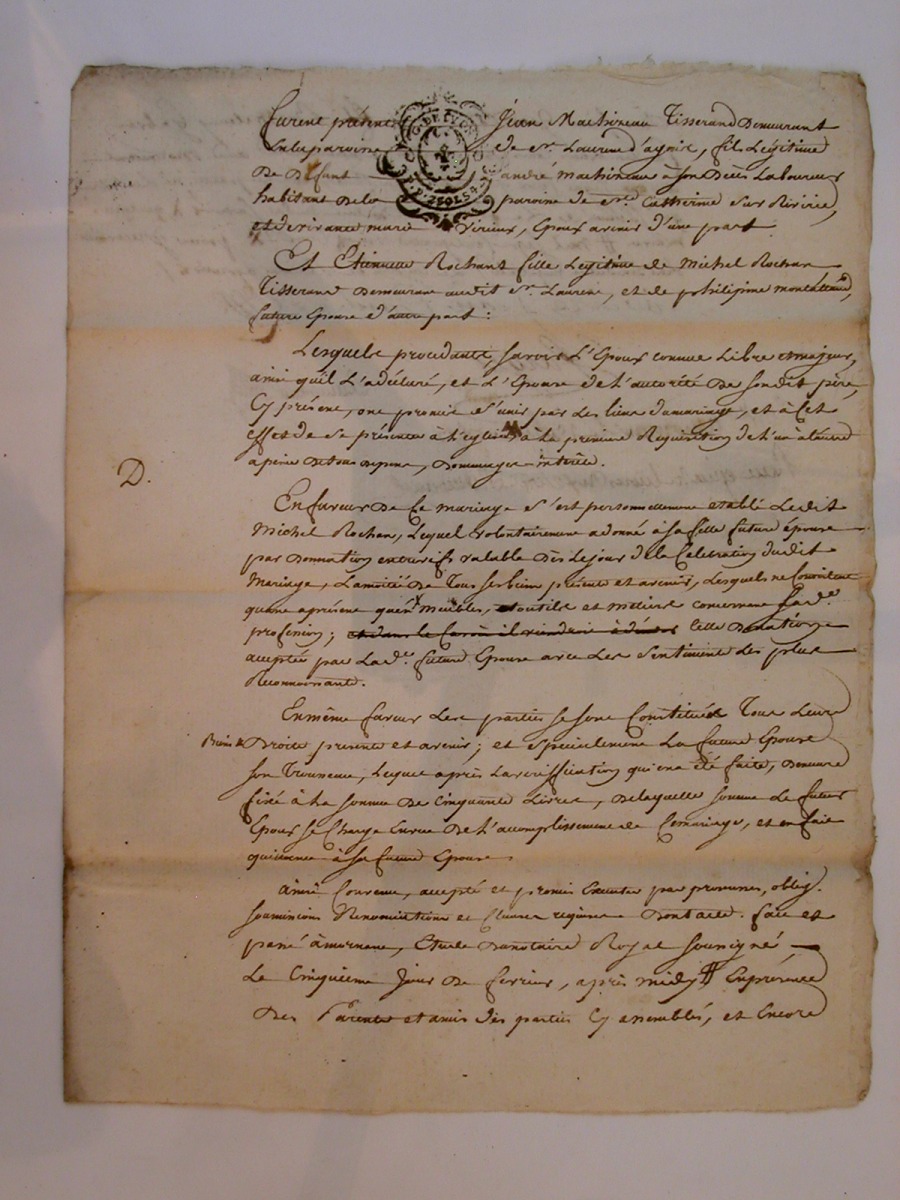 furent présents Jean Mathineau Tisserand Demeurant
en la paroisse de St. Laurent d'agnix, fils Légitime
De Défunt andré mathineau à son Décès Laboureur
habitant De la paroisse de Ste. Catherine Sur Rivirie,
et de vivante marie Virieux, Epoux avenir d'une part
G. DE LYON
2 SOLS 4 D
Et Etiennette Rochant fille Légitime de Michel Rochan
Tisserant Demeurant audit St. Laurent, et de philipine montaland,
future Epouse d'autre part :
Lesquels procédants, savoir L'Epoux comme Libre et majeur,
ainsi qu'il L'a déclaré, et L'Epouse de l'autorité De son dit père,
Cy présent, ont promis S'unir par Les liens du mariage, et à Cet
effet de Se présenter à l'eglise à la première Requisition de l'un à l'autre
à peine De tous Depens, Dommages intérêts.
D.
En faveur De Ce mariage s'est personnellement etabli Ledit
Michel Rochan, Lequel volontairement a donné à sa fille future épouse
par Donnation entrevifs valable Dès Le jour de la Celebration dudit
Mariage, La moitié De Tous ses biens présents et avenir, Lesquels ne Consistent
quant à présent qu'en meubles, outils et métiers concernant sa de.
profession; et dans le cas où il viendroit à Celle Donation
acceptée par La de. future Epouse avec Les Sentiments Les plus
Reconnoissants.
En même faveur Les parties se sont Constitués Tous Leurs
Biens & Droits presents et avenir; et spécialement La future Epouse
son Trousseau, Lequel après La vérification qui en a été faite, Demeure
fixé à La somme De Cinquante Livres, De laquelle somme Le futur
Epoux se Charge En vue De l'accomplissement de Ce mariage, et en fait
quittance à sa future Epouse.
ainsi Convenu, accepté et promis Executer par promesses, oblig.
soumissions Renonciations et Clauses requises Dont acte. fait et
passé à mornant, Etude Du notaire Royal soussigné
Le Cinquieme Jour De fevrier, après midy En présence
Des Parents et amis Des parties Cy assemblés, et Encore